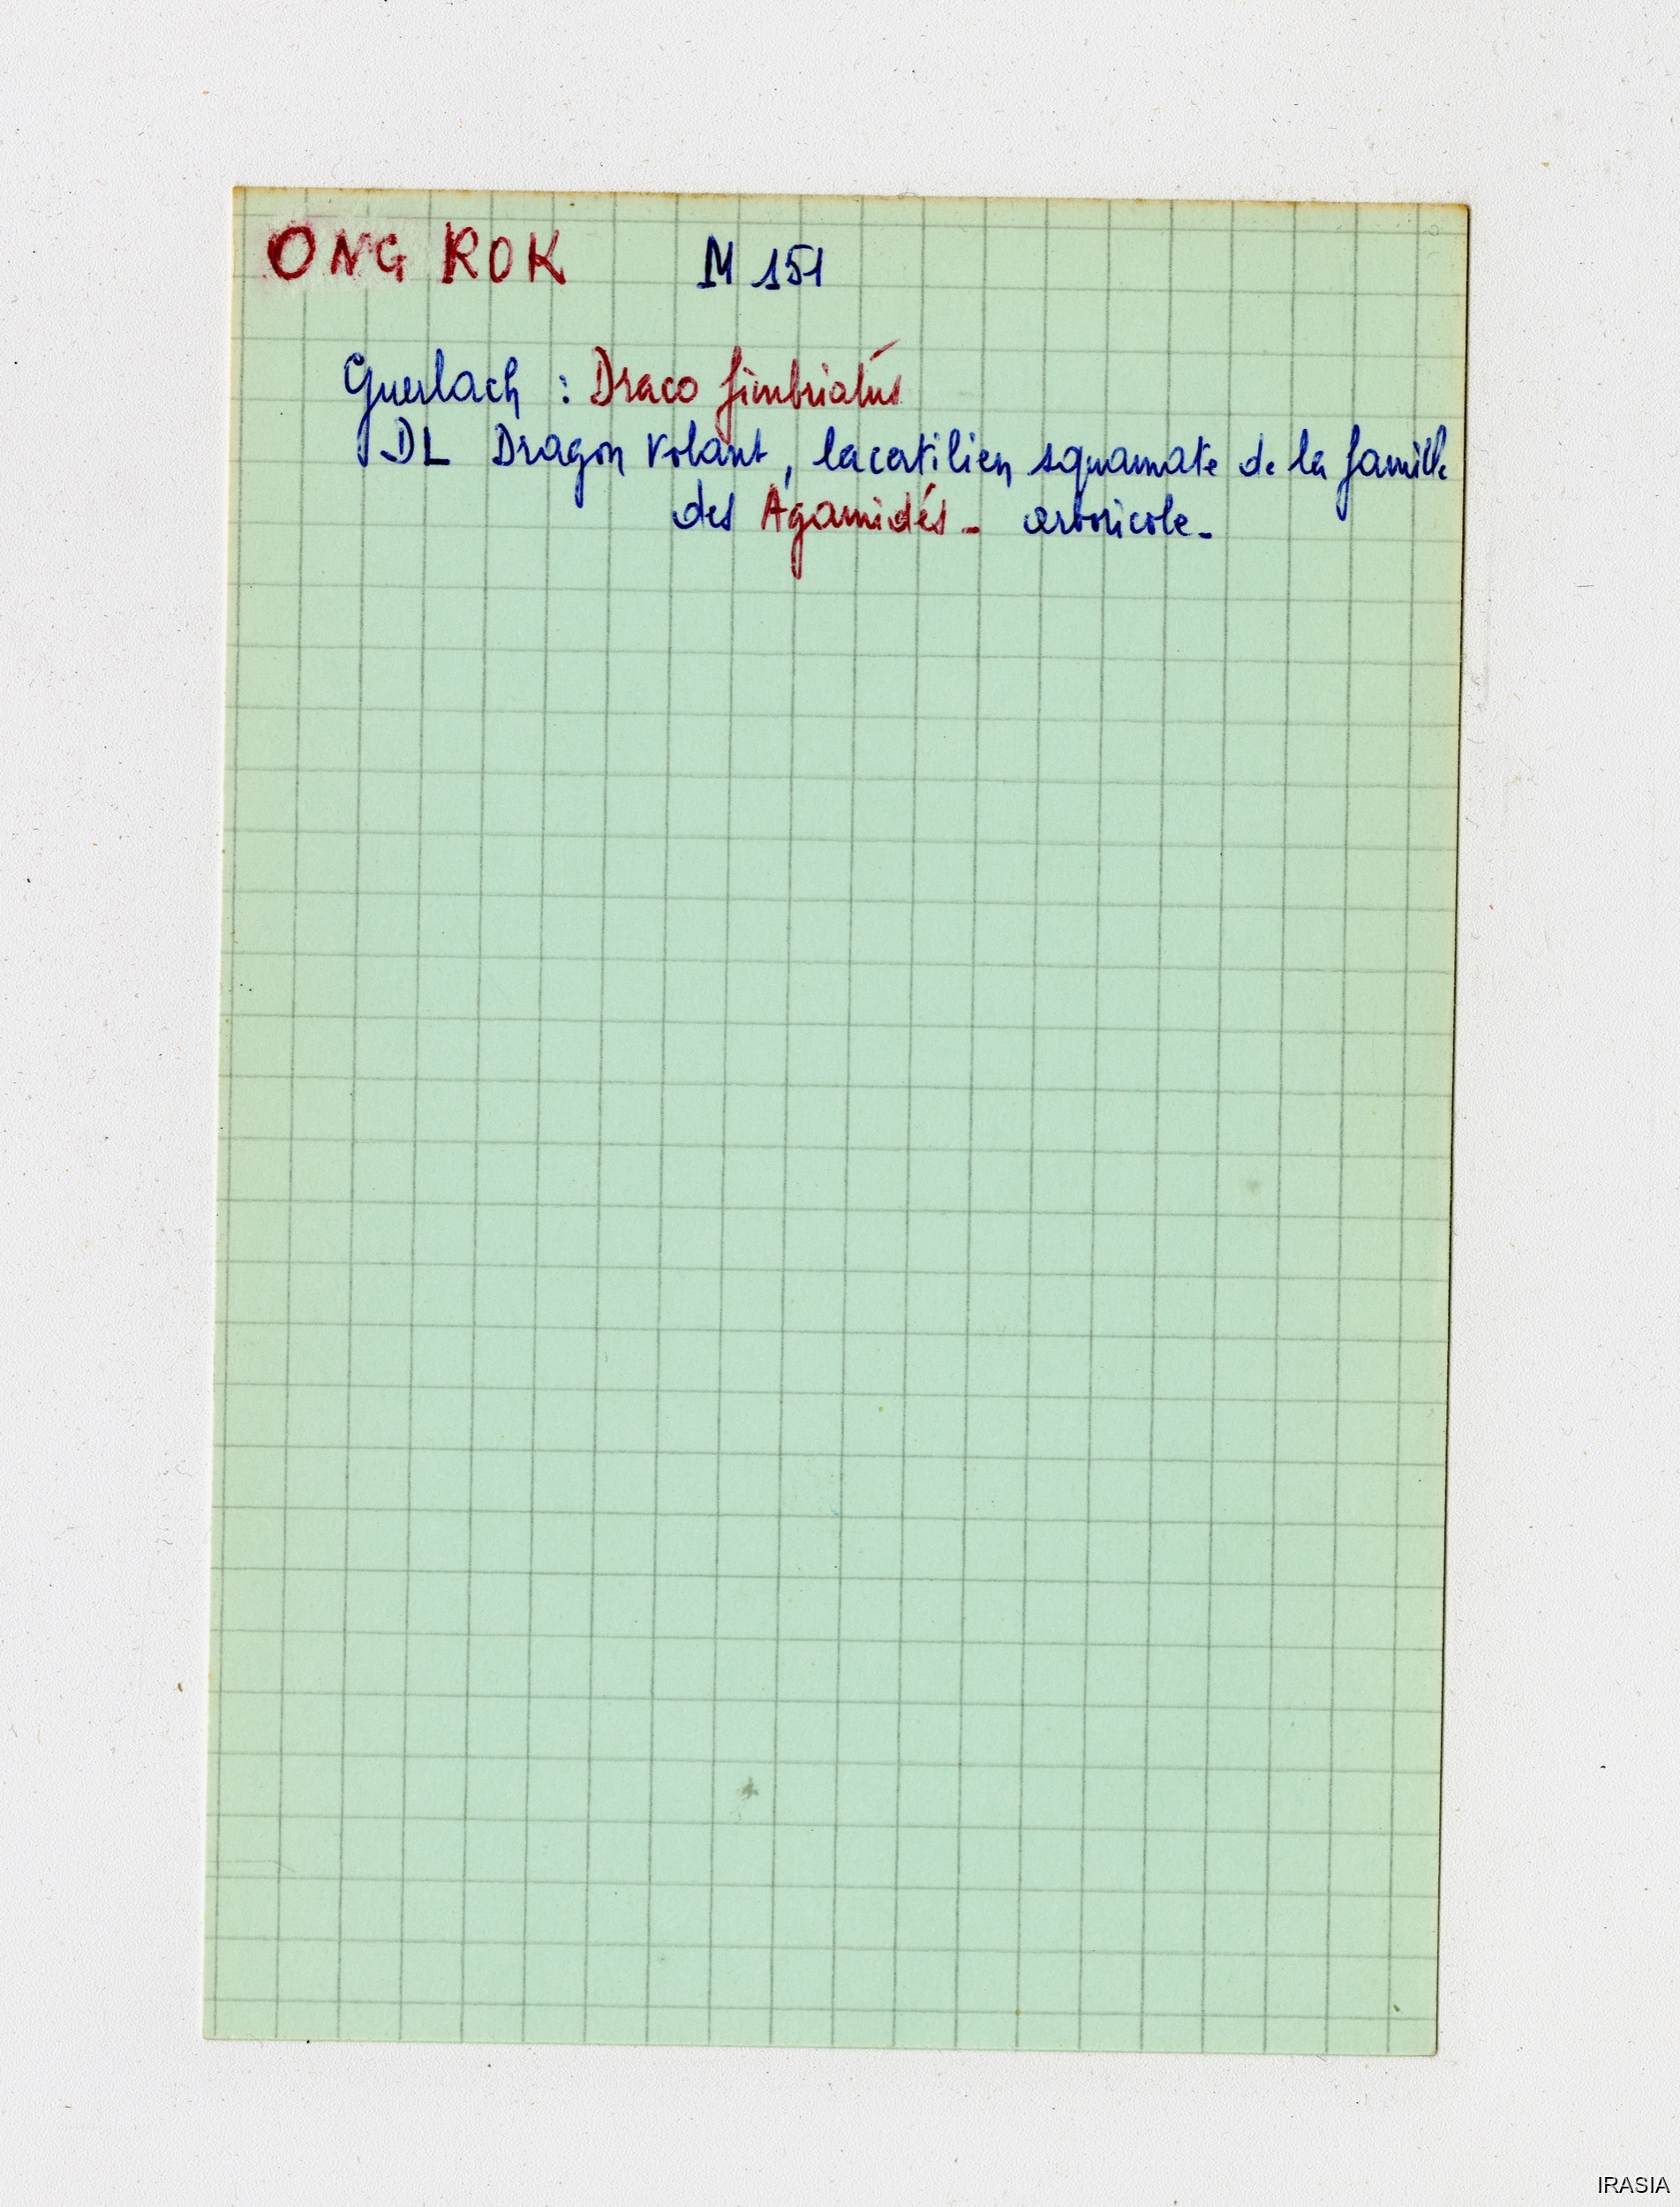 ONG ROK M 151
Guerlach : Draco fimbriatus
DL Dragon Volant, lacertilien squamate de la famille
des Agamidés - arboricole -
IRASIA